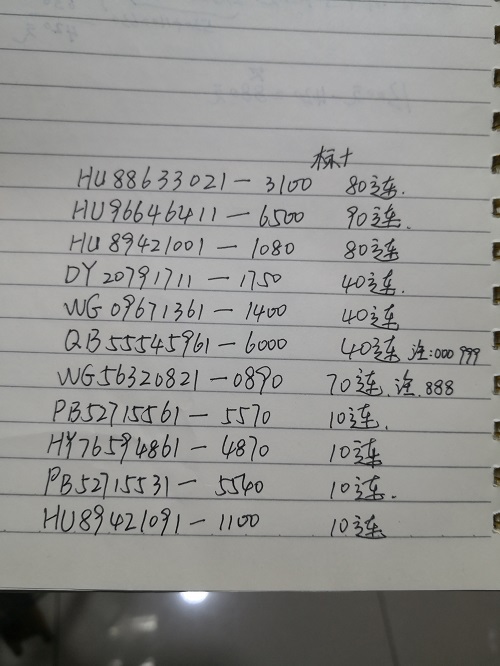 标十
HU88633021-3100 80连.
HU96646411-6500 90连.
HU89421001-1080 80连
DY20791711-1750 40连.
WG09671361-1400 40连
QB55545961-6000 40连 注:000 999
WG56320821-0890 70连. 注. 888
PB52715561-5570 10连.
HY76594861-4870 10连
PB52715531-5540 10连.
HU89421091-1100 10连